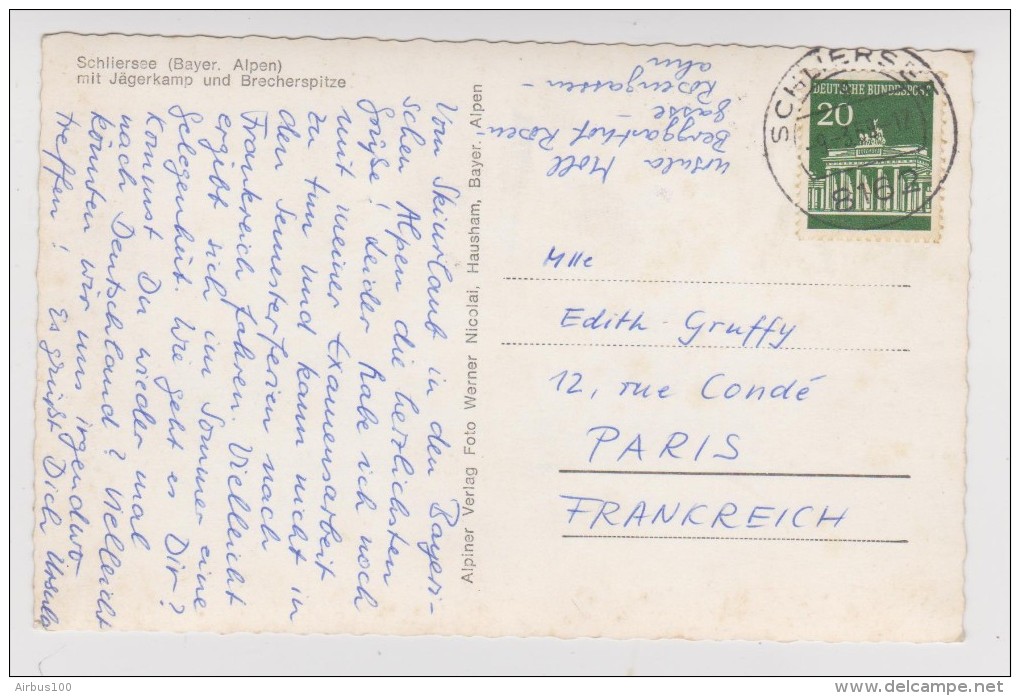 Schliersee (Bayer. Alpen)
mit Jägerkamp und Brecherspitze
Vom Skiurlaub in den Bayeri-
schen Alpen die herzlichsten
Grüße! Leider habe ich noch
mit meiner Examensarbeit
zu tun und kann nicht in
den Semesterferien nach
Frankreich fahren. Vielleicht
ergibt sich im Sommer eine
Gelegenheit. Wie geht es Dir?
Kommst Du wieder mal
nach Deutschland? Vielleicht
könnten wir uns irgendwo
treffen! Es grüßt Dich Ursula
Alpiner Verlag Foto Werner Nicolai, Hausham, Bayer. Alpen
Ursula Moll
Berggasthof Rosen-
gasse
Rosengassen-
alm
SCHLIERSEE
8162
DEUTSCHE BUNDESPOST
20
Mlle
Edith Gruffy
12, rue Condé
PARIS
FRANKREICH
Airbus100
www.delcampe.net